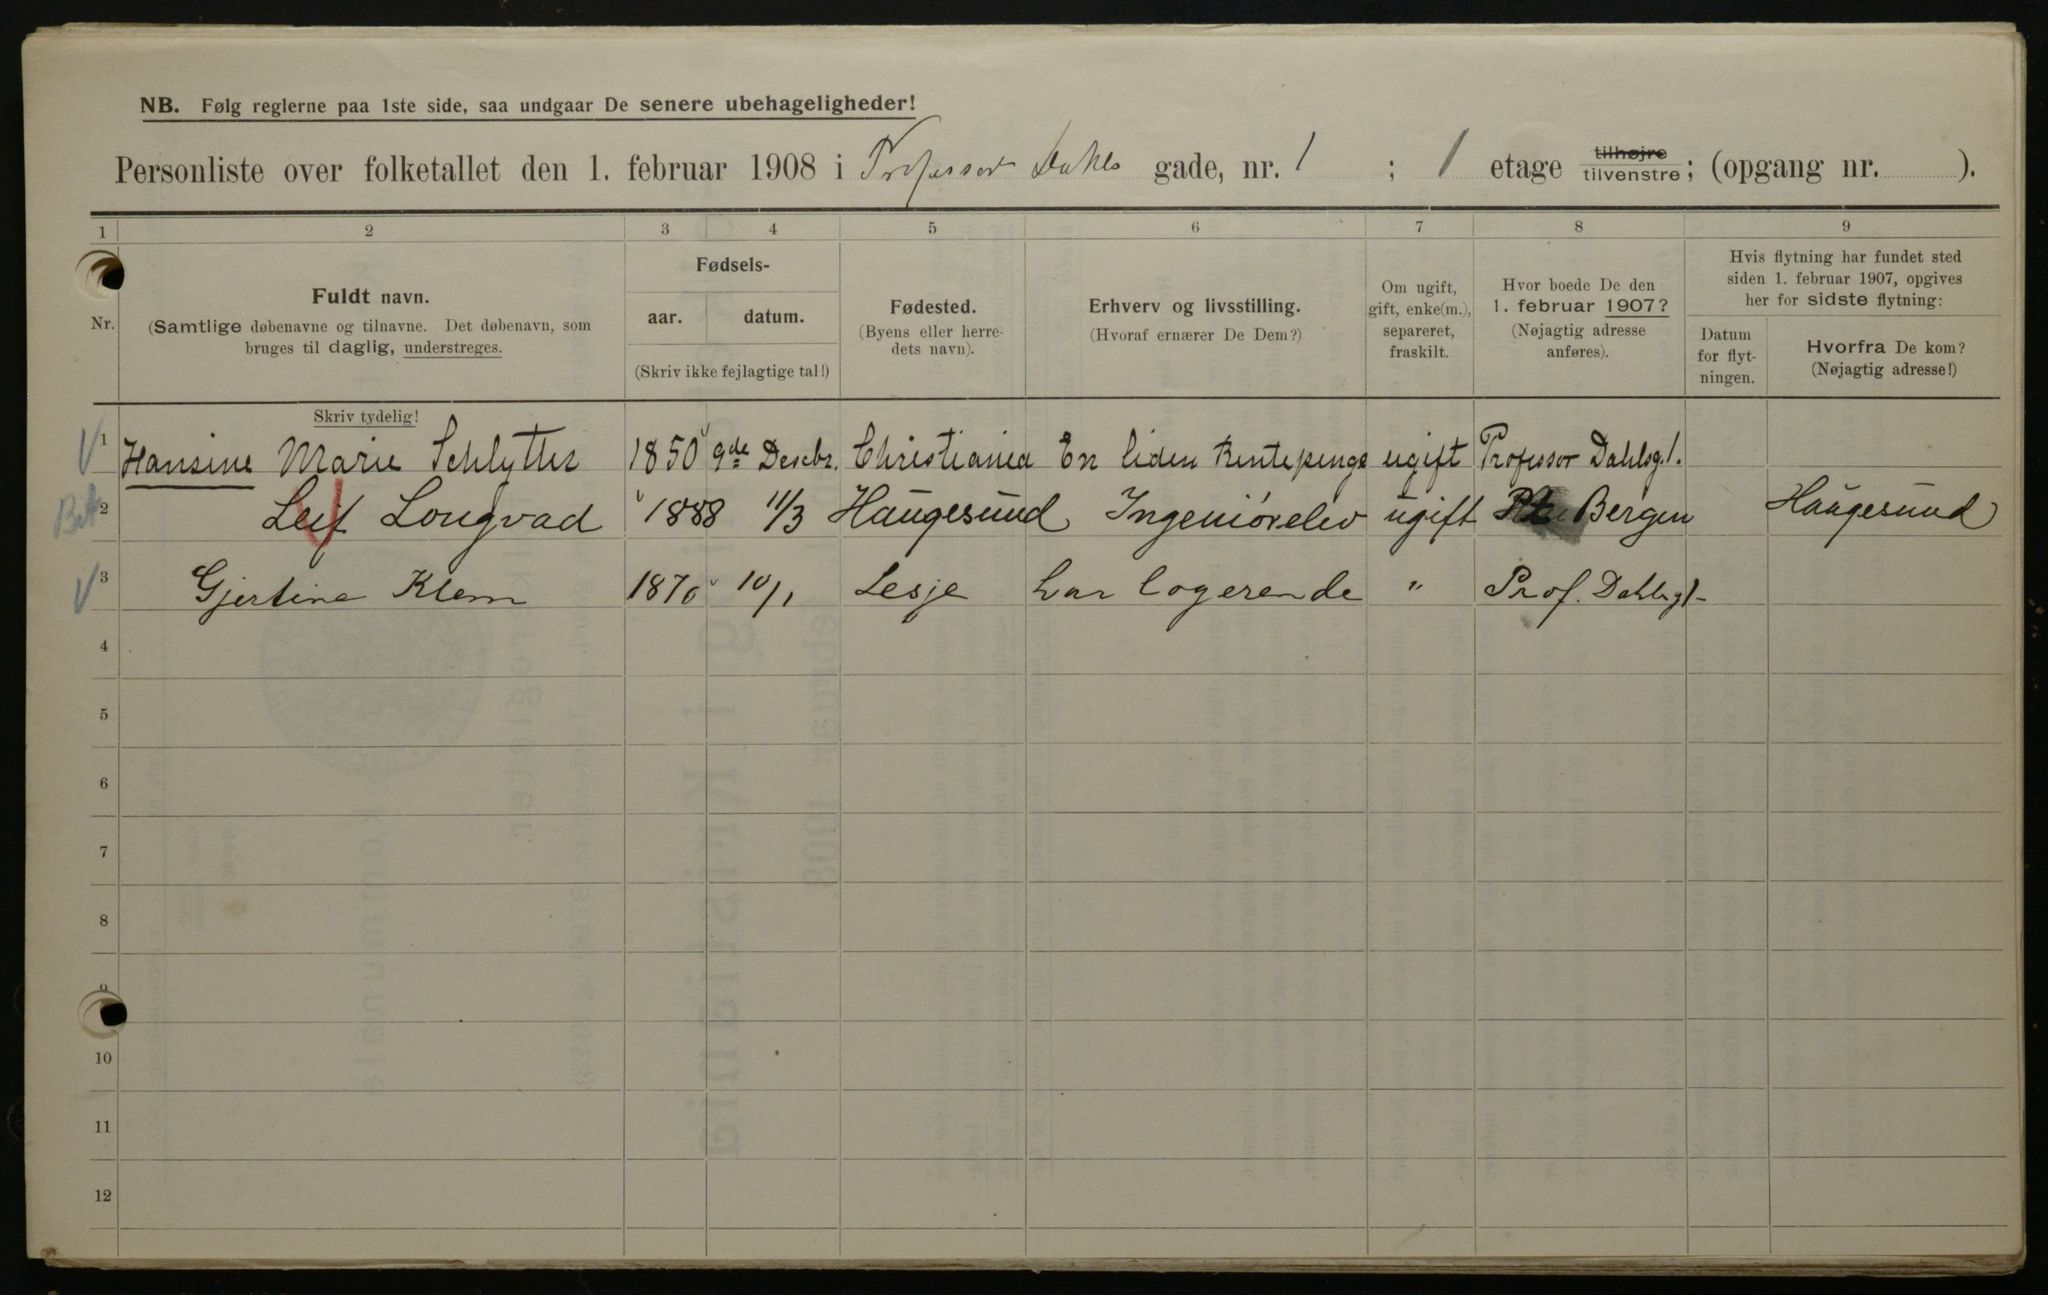 NB. Følg reglerne paa 1ste side, saa undgaar De senere ubehageligheder!
Personliste over folketallet den 1. februar 1908 i Professor Dahls gade, nr. 1 ; 1 etage tilhøjre tilvenstre; (opgang nr. ).
1 2 3 4 5 6 7 8 9
Nr.
Fuldt navn.
(Samtlige døbenavne og tilnavne. Det døbenavn, som
bruges til daglig, understreges.
Skriv tydelig!
Fødsels-
aar. datum.
(Skriv ikke fejlagtige tal!)
Fødested.
(Byens eller herre-
dets navn).
Erhverv og livsstilling.
(Hvoraf ernærer De Dem?)
Om ugift,
gift, enke(m.),
separeret,
fraskilt.
Hvor boede De den
1. februar 1907?
(Nøjagtig adresse
anføres).
Hvis flytning har fundet sted
siden 1. februar 1907, opgives
her for sidste flytning:
Datum
for flyt-
ningen.
Hvorfra De kom?
(Nøjagtig adresse!)
1 Hansine Marie Schlytter 1850 9de Decbr. Christiania En liden Rentepenge ugift Professor Dahlsg. 1.
2 Leif Longvad 1888 11/3 Haugesund Ingeniörelev ugift Bergen Haugesund
3 Gjertine Klem 1870 10/1 Lesje har logerende " Prof. Dahlsg 1
4
5
6
7
8
9
10
11
12